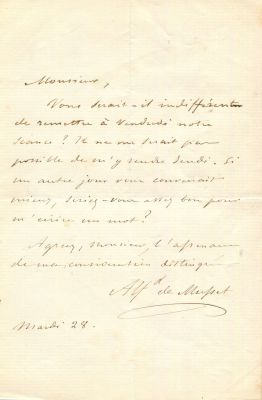 Monsieur,
Vous serait-il indifférent
de remettre à Vendredi notre
séance? Il ne me serait pas
possible de m'y rendre Jeudi. Si
un autre jour vous convenait
mieux, seriez-vous assez bon pour
m'écrire un mot?
Agréez, monsieur, l'assurance
de ma considération distinguée
Alf^d de Musset
Mardi 28.